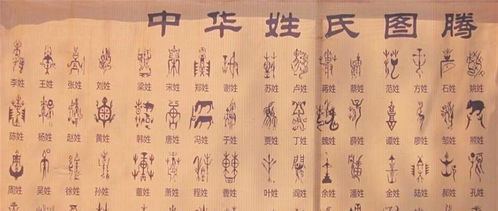 中华姓氏图腾
李姓 王姓 张姓 刘姓 梁姓 宋姓 郑姓 谢姓 苏姓 卢姓 蒋姓 蔡姓 范姓 方姓 石姓 姚姓
陈姓 杨姓 赵姓 黄姓 韩姓 唐姓 冯姓 于姓 贾姓 丁姓 魏姓 薛姓 谭姓 廖姓 邹姓 熊姓
周姓 吴姓 徐姓 孙姓 董姓 萧姓 程姓 曹姓 叶姓 阎姓 余姓 潘姓 金姓 陆姓 郝姓 孔姓